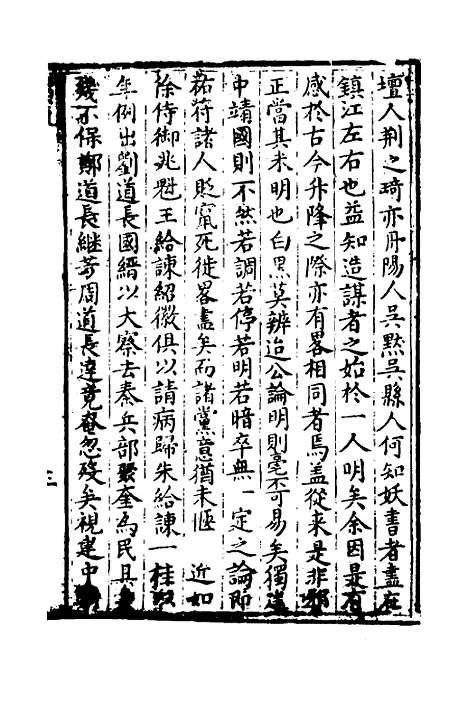 壇人荆之琦亦丹陽人吳默吳縣人何知妖書者盡在
鎮江左右也益知造謀者之始於一人明矣余因是有
感於古今升降之際亦有畧相同者焉盖從来是非邪
正當其未明也白黒莫辨迨公論明則毫不可易矣獨建
中靖國則不然若調若停若明若暗卒無一定之論即
祐符諸人貶竄死徒畧盡矣而諸黨意猶未愜 近如
徐侍御兆魁王給諫紹徽俱以請病歸朱給諫一桂以
年例出劉道長國縉以大察去秦兵部聚奎為民且
幾不保鄭道長継芳周道長達竟奄忽殁矣視建中
三